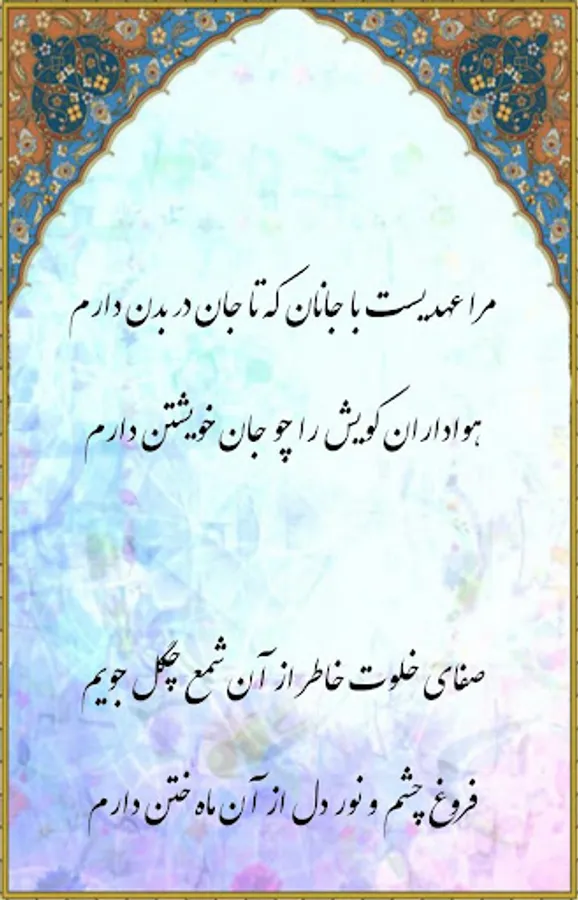 مرا عهدیست با جانان که تا جان در بدن دارم
هواداران کویش را چو جان خویشتن دارم
صفای خلوت خاطر از آن شمع چگل جویم
فروغ چشم و نور دل از آن ماه ختن دارم